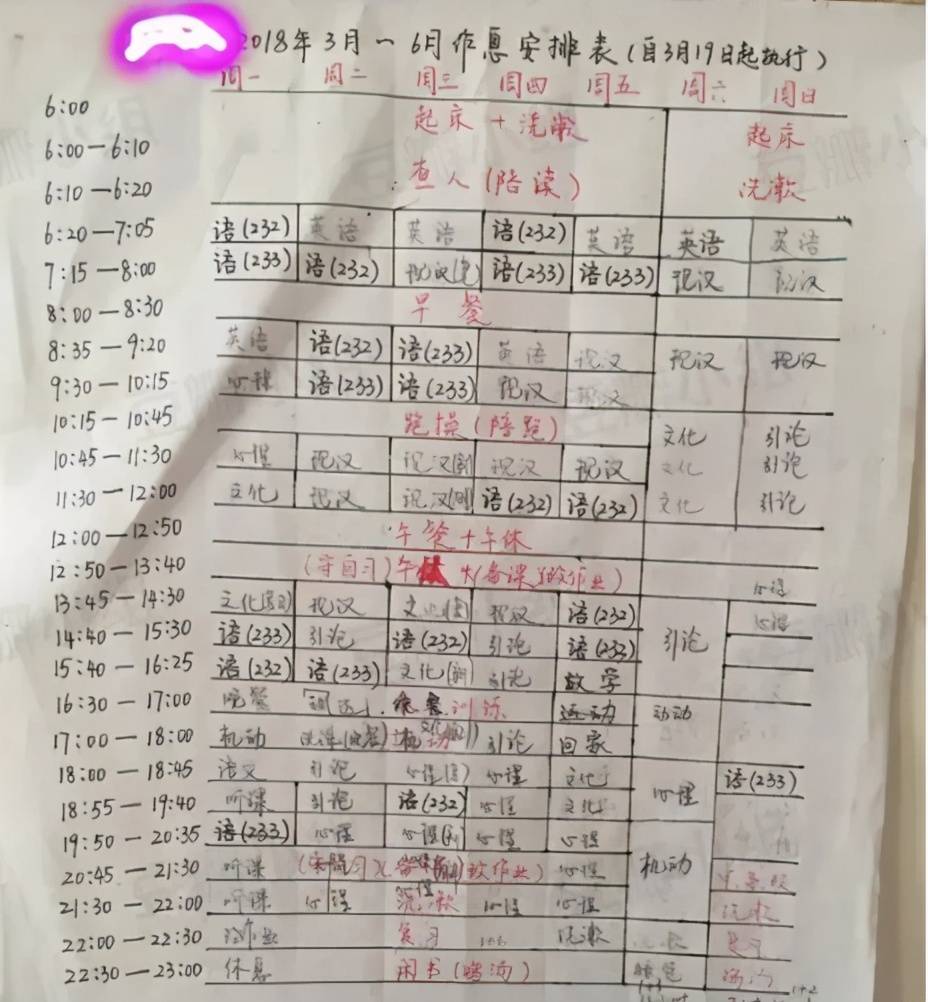 2018年3月一6月作息安排表(自3月19日起执行)
周一 周二 周三 周四 周五 周六 周日
6:00 起床+洗漱 起床
6:00—6:10
6:10—6:20 查人(陪读) 洗漱
6:20—7:05 语(232) 英语 英语 语(232) 英语 英语 英语
7:15—8:00 语(233) 语(232) 现汉 语(233) 语(233) 现汉 现汉
8:00—8:30 早餐
8:35—9:20 英语 语(232) 语(233) 英语 现汉 现汉 现汉
9:30—10:15 心理 语(233) 语(233) 现汉 现汉
10:15—10:45 跑操(陪跑) 文化 引论
10:45—11:30 心理 现汉 现汉 现汉 现汉 文化 引论
11:30—12:00 文化 现汉 现汉 语(232) 语(232) 文化 引论
12:00—12:50 午餐+午休
12:50—13:40 (守自习)午休 (备课 做作业) 心理
13:45—14:30 文化 现汉 文化 现汉 语(232) 引论 心理
14:40—15:30 语(233) 引论 语(232) 引论 语(233)
15:40—16:25 语(232) 语(233) 文化 引论 放学
16:30—17:00 晚餐 训练 运动 动动
17:00—18:00 机动 引论 回家
18:00—18:45 语文 引论 心理 心理 文化 心理 语(233)
18:55—19:40 听课 引论 语(232) 心理 文化
19:50—20:35 语(233) 心理 心理 心理 心理 机动
20:45—21:30 听课 做作业) 心理
21:30—22:00 听课 心理 洗漱 心理 心理 洗漱
22:00—22:30 复习 洗漱 复习
22:30—23:00 休息 闲书